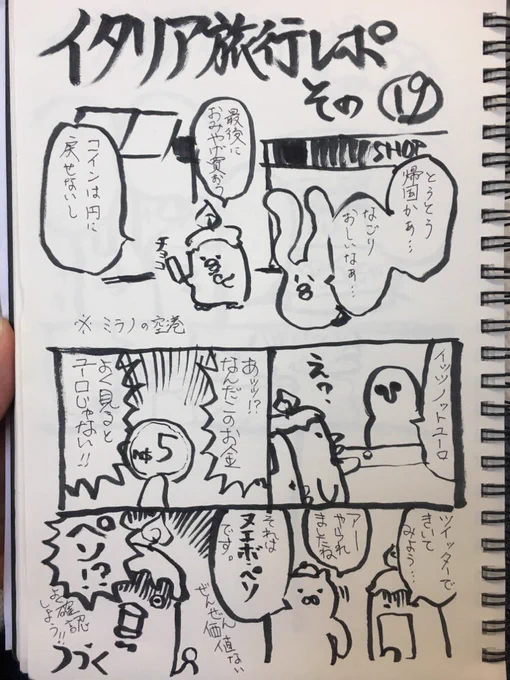 イタリア旅行レポ
その⑲
SHOP
とうとう
帰国かぁ…
なごり
おしいなぁ…
最後に
おみやげ買おう
コインは円に
戻せないし
チョコ
※ミラノの空港
イッツノットユーロ
えっ?
あッッ!?
なんだこのお金
よく見ると
ユーロじゃない!!
N$5
ツイッターで
きいて
みよう…
アー
やられ
ましたね
それは
ヌエボ・ペソ
です。
ぜんぜん価値ない
ペソ!?
よく確認
しよう!!
つづく